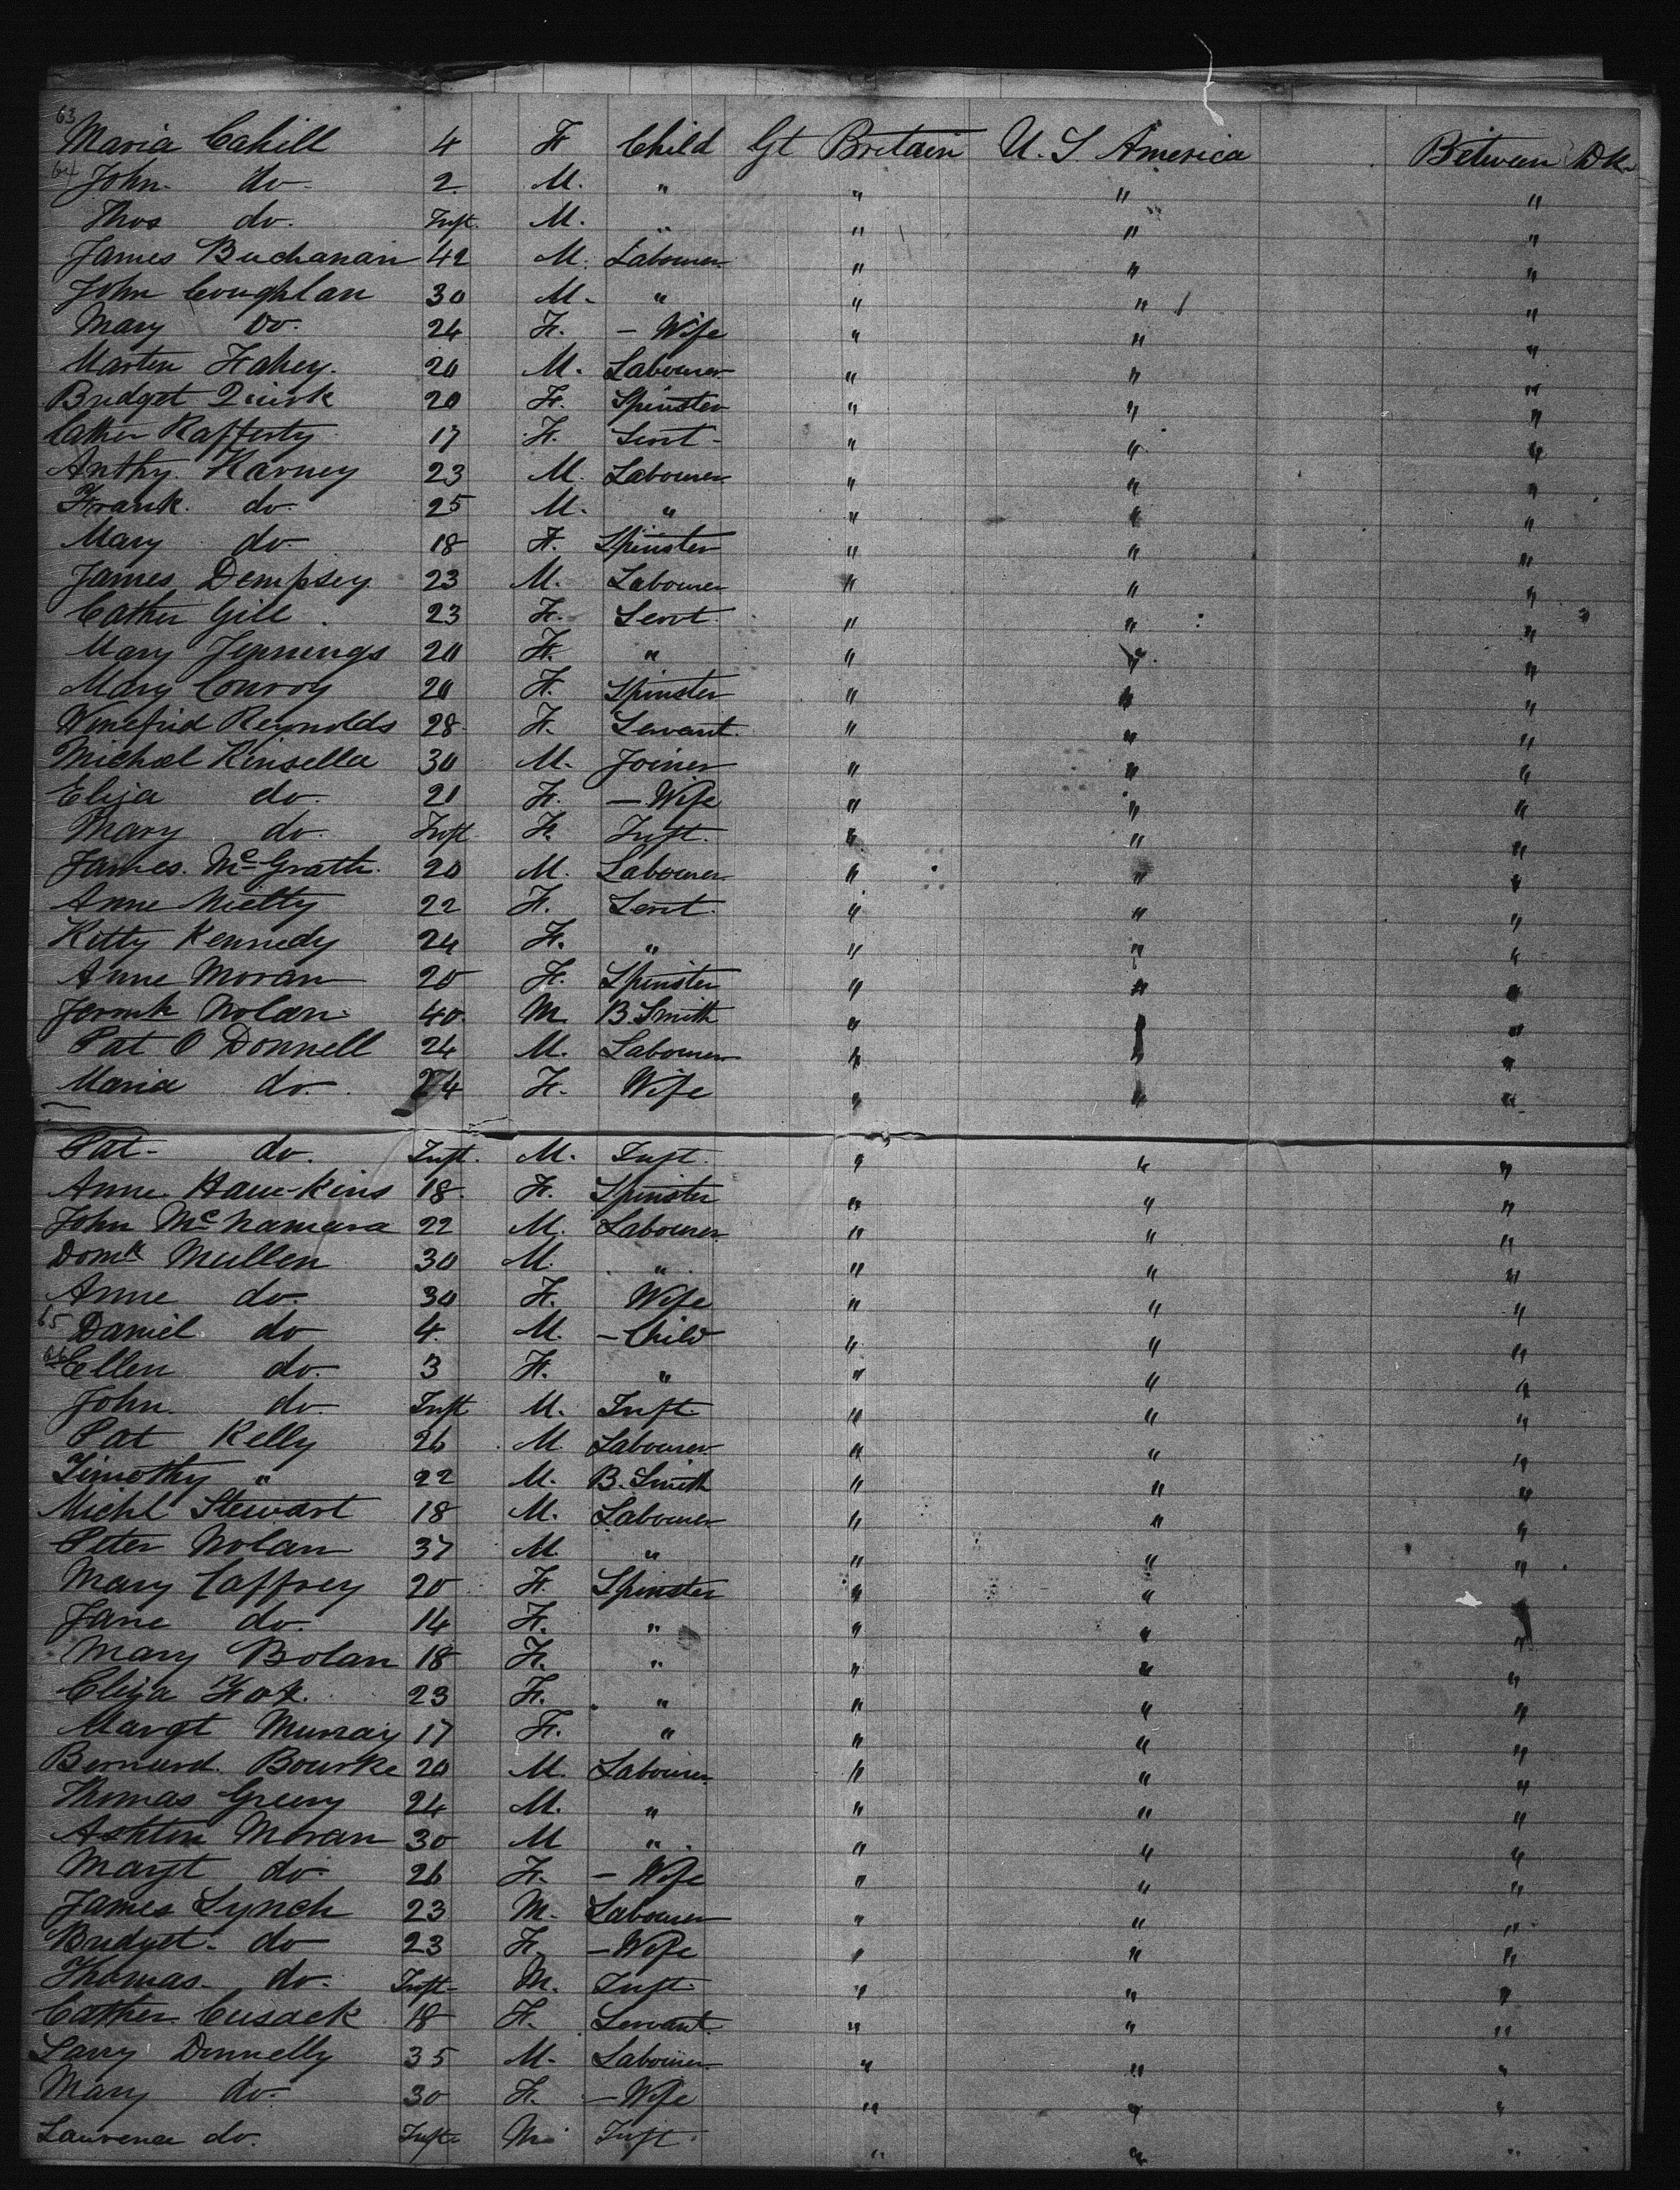 63
Maria Cahill 4 F Child Gt Britain U.S America Between Dk
64 John do 2 M. " " " "
Thos do. Inft. M. " " " "
James Buchanan 42 M. Labourer " " "
John Coughlan 30 M. " " " "
Mary Do. 24 F. - Wife " " "
Marten Fahey. 20 M. Labourer " " "
Bridget Quirk 20 F. Spinster " " "
Cather Rafferty 17 F. Servt " " "
Anthy. Harney 23 M. Labourer " " "
Frank. do. 25 M. " " " "
Mary do. 18 F. Spinster " " "
James Dempsey 23 M. Labourer " " "
Cather Gill 23 F. Servt. " " "
Mary Jennings 20 F. " " " "
Mary Conroy 20 F. Spinster " " "
Winefrid Reynolds 28 F. Servant. " " "
Michael Kinsella 30 M. Joiner " " "
Eliza do. 21 F. - Wife " " "
Mary do. Inft. F. Inft. " " "
James. McGrath. 20 M. Labourer " " "
Anne 22 F. Servt. " " "
Kitty Kennedy 24 F. " " " "
Anne Moran 20 F. Spinster " " "
Nolan 40. M B. Smith " " "
Pat O Donnell 24 M. Labourer " " "
Maria do. 24 F. Wife " " "
Pat do. Inft. M. Inft. " " "
Anne Hawkins 18. F. Spinster " " "
John McNamara 22 M. Labourer " " "
Domk Mullen 30 M. " " " "
Anne do. 30 F. Wife " " "
65 Daniel do 4 M. - Child " " "
66 Ellen do. 3 F. " " " "
John do. Inft M. Inft. " " "
Pat Kelly 26 M. Labourer " " "
Timothy " 22 M. B. Smith " " "
Michl Stewart 18 M. Labourer " " "
Peter Nolan 37 M. " " " "
Mary Caffrey 20 F. Spinster " " "
Jane do. 14 F. " " " "
Mary Bolan 18 F. " " " "
Eliza Fox. 23 F. " " " "
Margt Murray 17 F. " " " "
Bernard. Bourke 20 M. Labourer " " "
Thomas Greeny 24 M. " " " "
Ashten Moran 30 M " " " "
Margt do. 26 F. - Wife " " "
James Lynch 23 M. Labourer " " "
Bridget. do 23 F. - Wife " " "
Thomas. do. Inft. M. Inft. " " "
Cather. Cusack 18 F. Servant. " " "
Larry Donnelly 35 M. Labourer " " "
Mary do. 30 F. - Wife " " "
Lawrence do. Inft. M. Inft. " " "